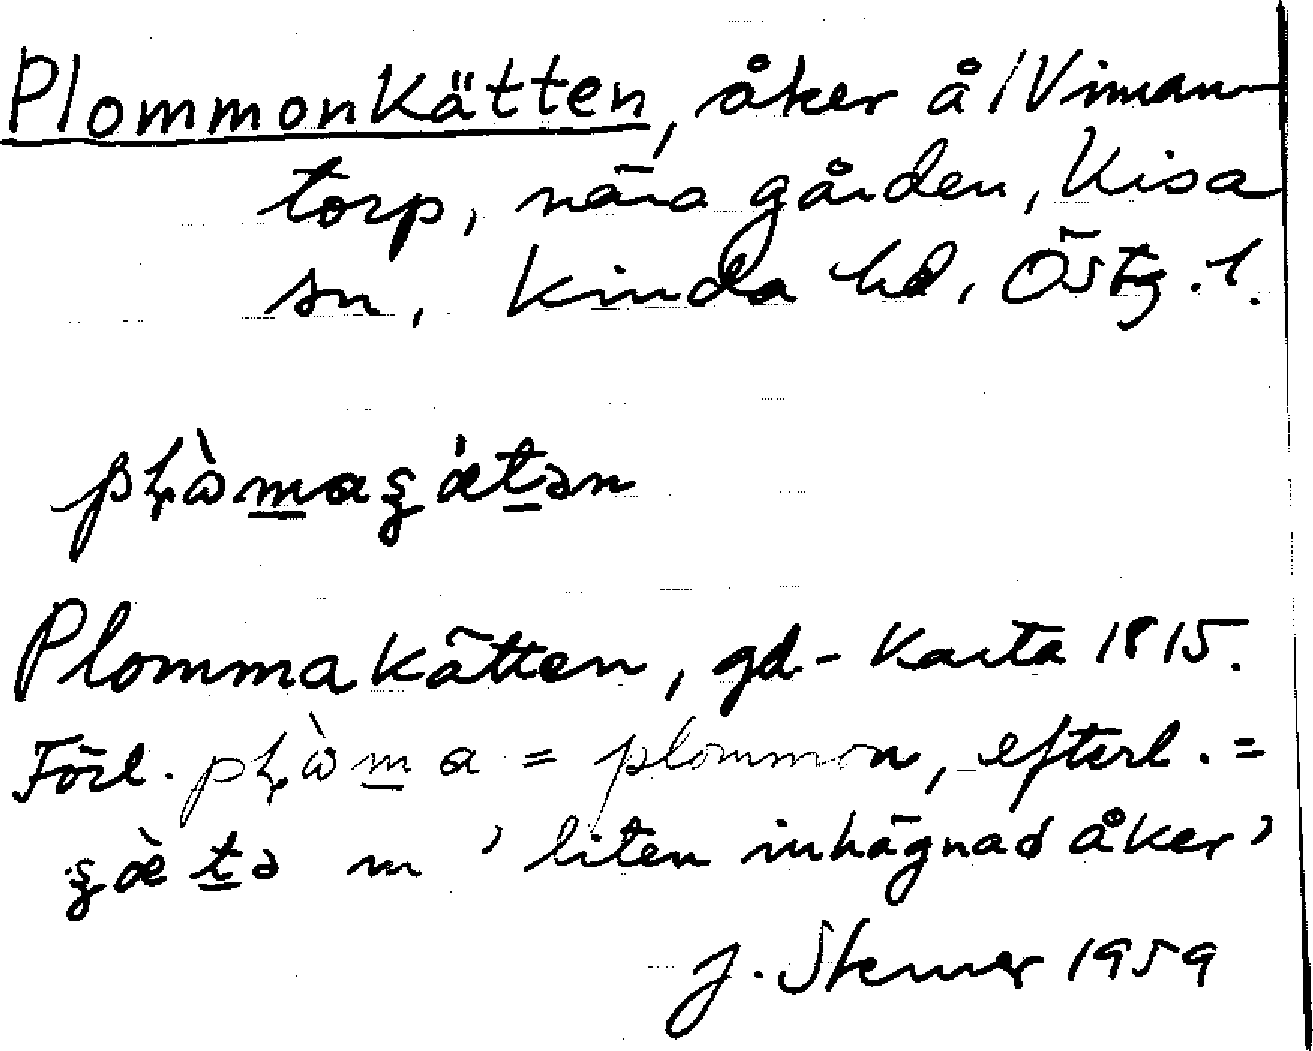 Plommonkätten, åker å/Viman-
torp, nära gården, Kisa
sn, Kinda hd, Östg. l.
Plommakätten, gd-karta 1815.
Förl. = plommon, efterl. =
m 'liten inhägnad åker'
J. 1959